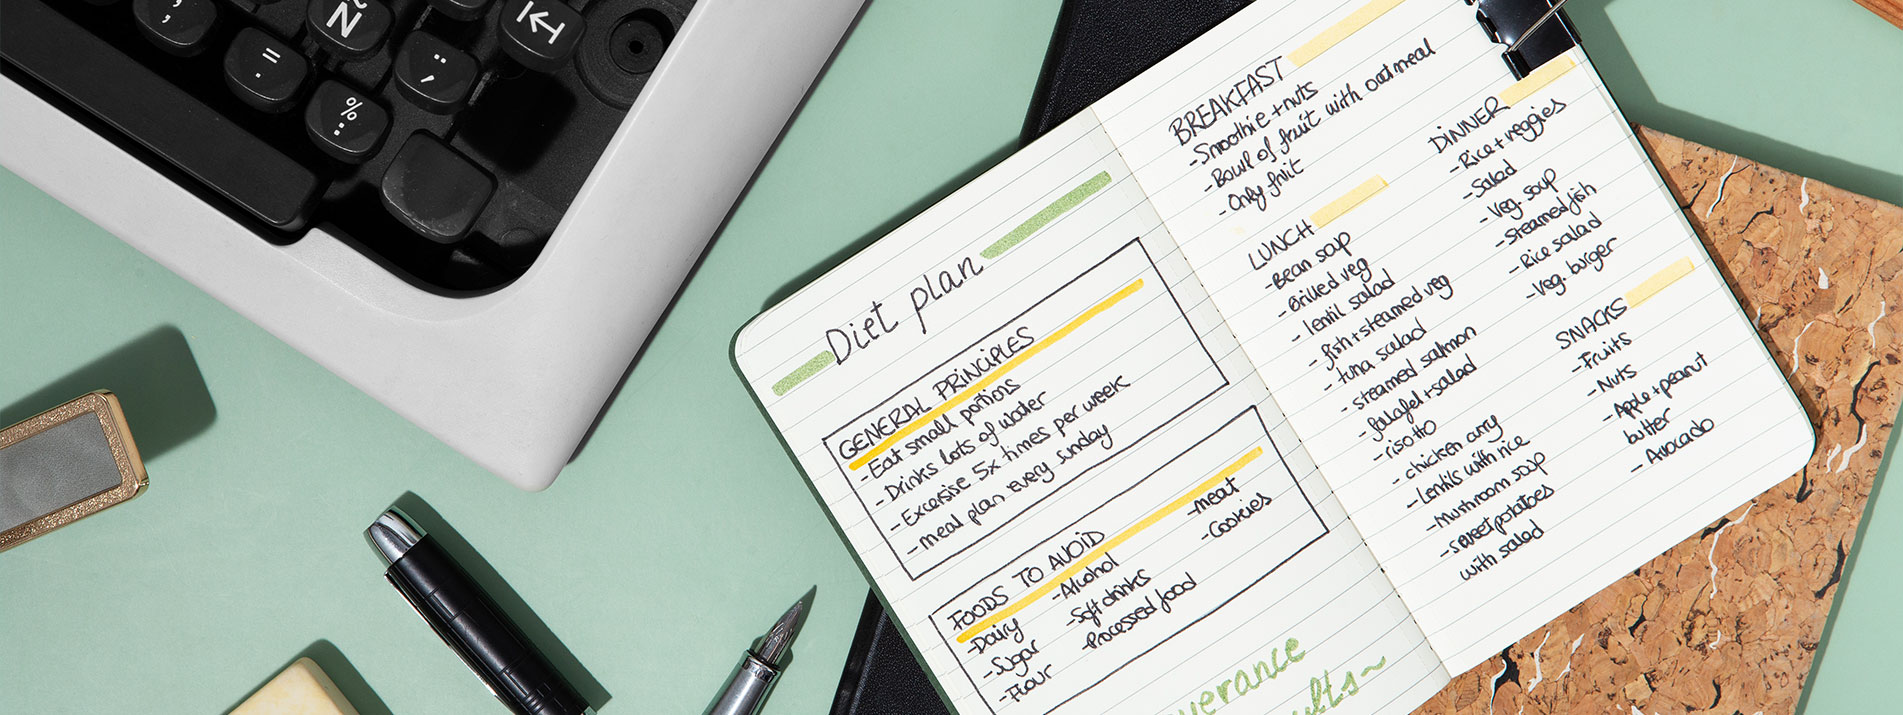 Ñ
%
Diet plan
GENERAL PRINCIPLES
-Eat small portions
-Drinks lots of water
-Excersise 5x times per week
-meal plan every sunday
FOODS TO AVOID
-Dairy
-Sugar
-Flour
-Alcohol
-Soft drinks
-Processed food
-meat
-Cookies
BREAKFAST
-Smoothie+nuts
-Bowl of fruit with oatmeal
-Only fruit
LUNCH
-Bean soup
-Grilled veg
-lentil salad
-fish+steamed veg
-tuna salad
-steamed salmon
-falafel+salad
-risotto
-chicken curry
-Lentils with rice
-mushroom soup
-sweet potatoes
with salad
DINNER
-Rice+veggies
-Salad
-Veg. soup
-Steamed fish
-Rice salad
-Veg. burger
SNACKS
-Fruits
-Nuts
-Apple+peanut
butter
-Avocado
verance
ults~